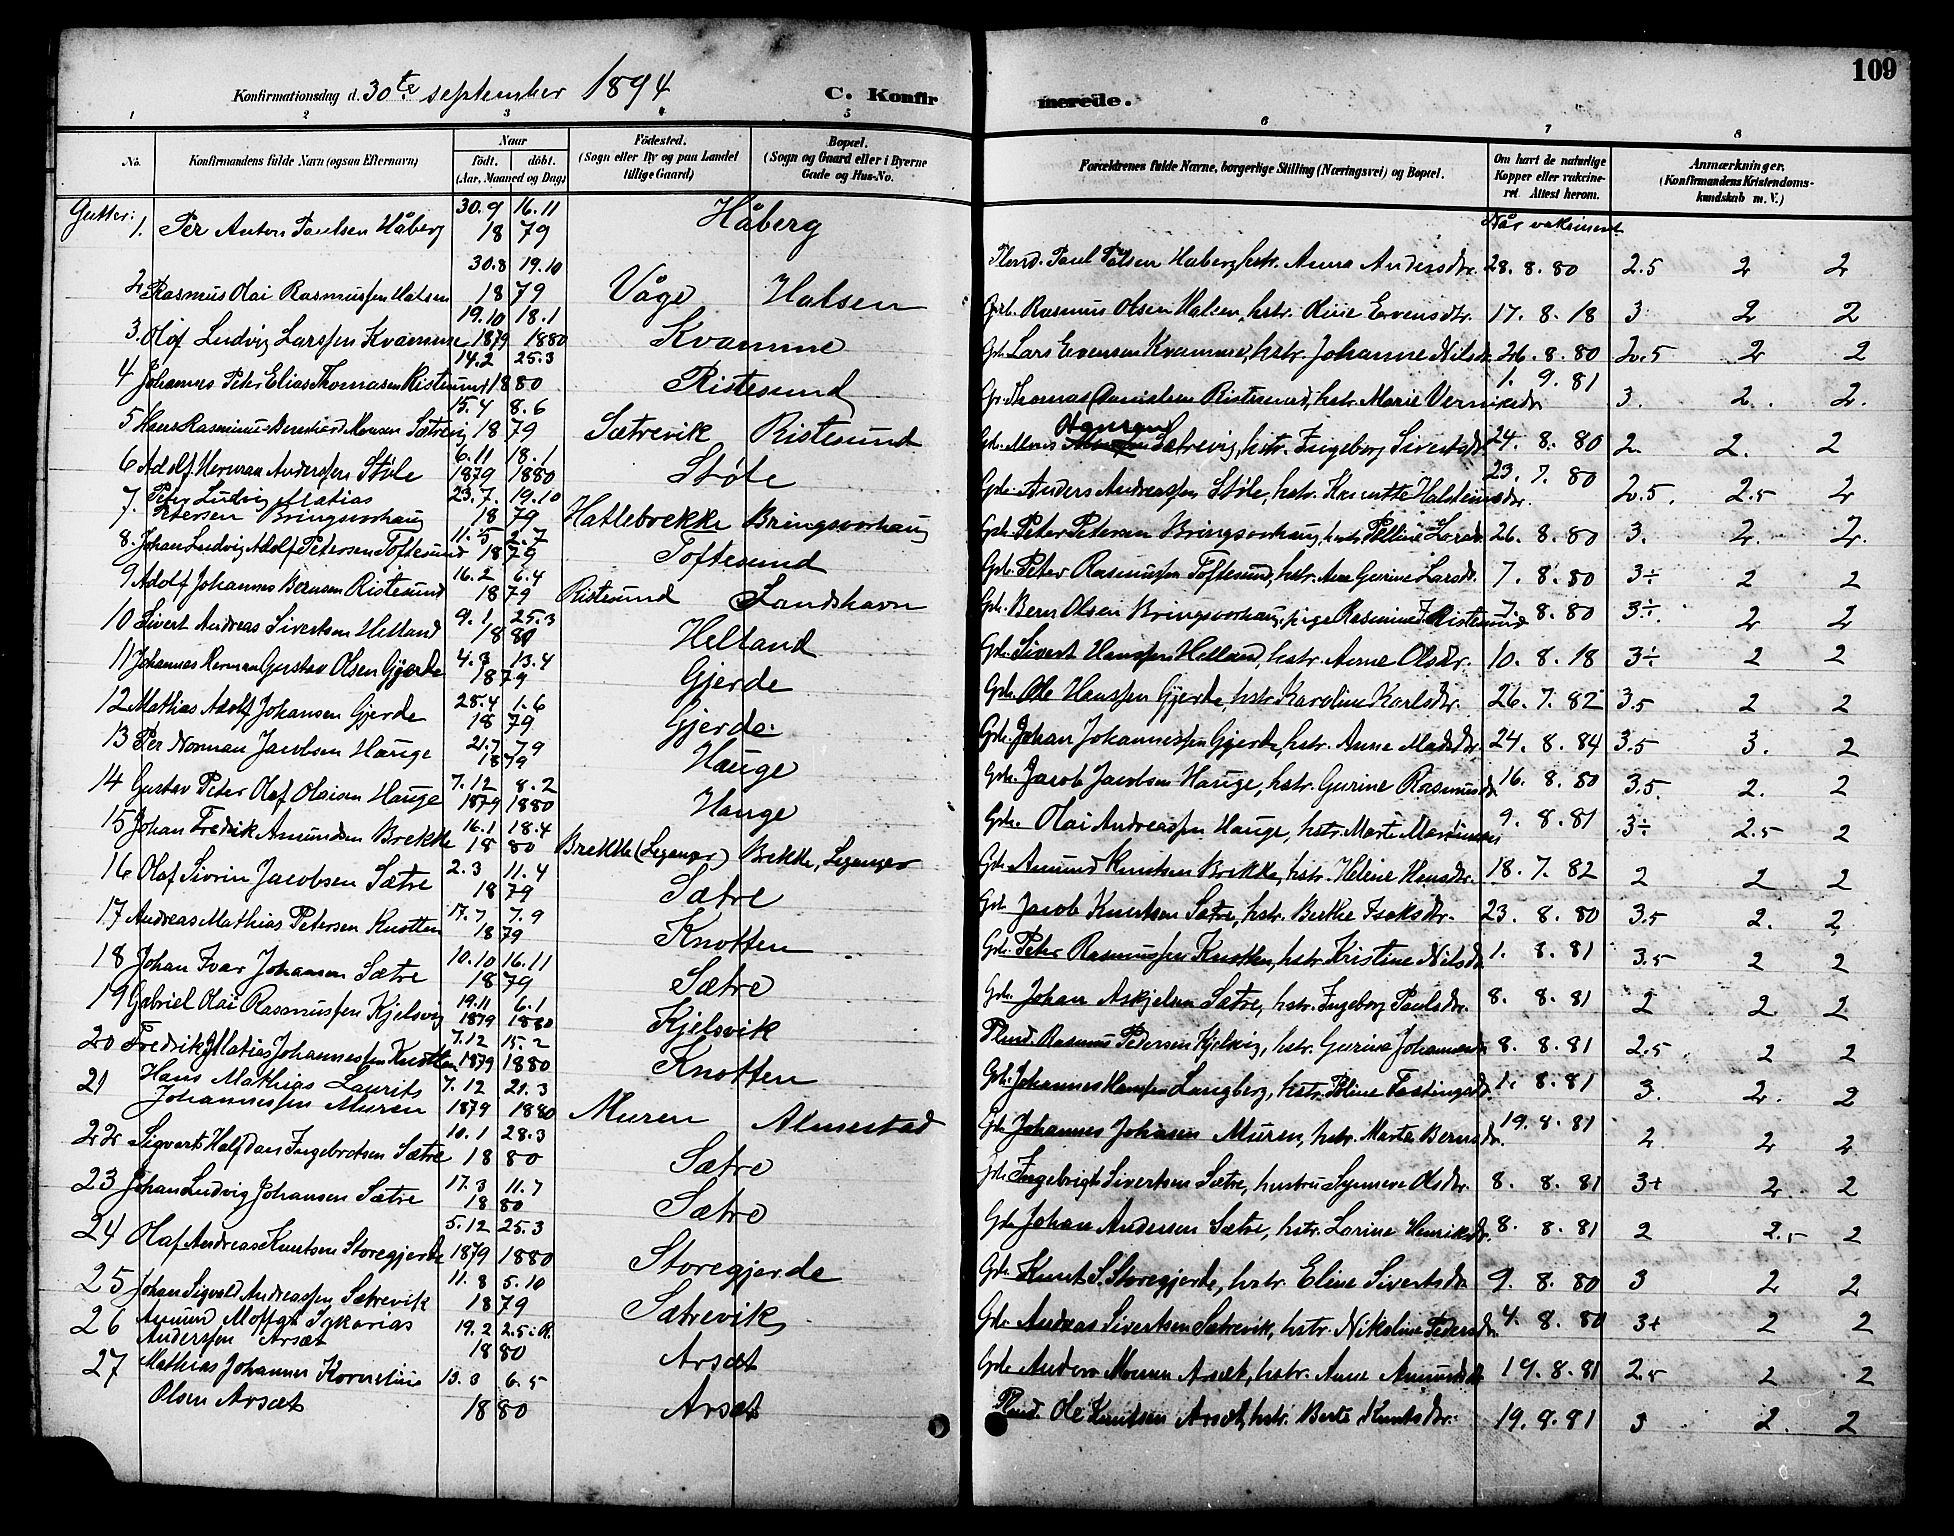 109
Konfirmationsdag d. 30te september 1894 C. Konfir merede.
1 2 3 4 5 6 7 8
No. Konfirmandens fulde Navn (ogsaa Efternavn)
Naar
født. døbt.
(Aar, Maaned og Dag)
Fødested.
(Sogn eller By og paa Landet
tillige Gaard)
Bopæl.
(Sogn og Gaard eller i Byerne
Gade og Hus-No.
Forældrenes fulde Navne, borgerlige Stilling (Næringsvei) og Bopæl.
Om havt de naturlige
Kopper eller vaksine-
ret. Attest herom.
Anmærkninger.
(Konfirmandens Kristendoms-
kundskab m. V.)
Gutter: Når vaksineret
1. Per Anton Paulsen Håberg 30.9 16.11 1879 Håberg Paul Pålsen Haberg, hstr. Anna Andersdtr. 28.8.80 2.5 2 2
2. Rasmus Olai Rasmussen Halsen 30.8 19.10 1879 Våge Halsen Rasmus Olsen Halsen, hstr. Oline Evensdtr. 17.8.18 3 2 2
3. Olof Ludvig Larssen Kvamme 19.10 1879 18.1 1880 Kvamme Gbr. Lars Evensen Kvamme, hstr. Johanne Nilsdtr. 26.8.80 2.5 2 2
4 Johannes Peter Elias Thomasen Ristesund 14.2 25.3 1880 Ristesund Thomas Danielsen Ristesund, hstr. Marie 1.9.81 3. 2. 2.
5 Hans Rasmus Bernhard Monsen Sætrevig 15.4 8.6 1879 Sætrevik Ristesund Gbr. Mons Sætrevig, hstr. Ingeborg Sivertsdtr 24.8.80 2 2. 2
6 Adolf Herman Anderssen Støle 6.11 1879 18.1 1880 Støle Gbr. Anders Andreassen Støle, hstr. Knutte Halsteinsdtr. 23.7.80 2.5. 2.5 2
7. Peter Ludvig Matias
Petersen Bringsvorhaug 23.7. 19.10 1879 Hatlebrekke Bringsvorhaug Gbr. Peter Petersen Bringsvorhaug, hstr. Larsdtr 26.8.80 3. 2. 2.
8. Johan Ludvig Adolf Petersen Toftesund 11.5 2.7 1879 Toftesund Gbr. Peter Rasmussen Toftesund, hstr. Ane Gurine Larsdtr. 7.8.80 3÷ 2 2
9 Adolf Johannes Bernsen Ristesund 16.2 6.4 1879 Ristesund Sandshavn Gbr. Bern Olsen Bringsvorhaug, pige Rasmine Ristesund 7.8.80 3÷. 2 2
10 Sivert Andreas Sivertsen Helland 9.1 25.3 1880 Helland Gbr. Sivert Hanssen Helland, hstr. Anne Olsdtr. 10.8.18 3÷ 2 2
11 Johannes Herman Gustav Olsen Gjerde 4.3 13.4 1879 Gjerde Gbr. Ole Hanssen Gjerde, hstr. Karoline Karlsdtr. 26.7.82 3.5 2 2
12 Mathias Adolf Johansen Gjerde 28.4 1.6 1879 Gjerde Gbr. Johan Johannessen Gjerde, hstr. Anne Madsdtr. 24.8.84 3.5 3. 2
13 Per Norman Jacobsen Hauge 21.7 7.9 1879 Hauge Gbr. Jacob Jacobsen Hauge, hstr. Gurine Rasmusdtr 16.8.80 3.5. 2. 2
14 Gustav Peter Olaf Olaisen Hauge 7.12 1879 8.2 1880 Hauge Gbr. Olai Andreassen Hauge, hstr. Marte 9.8.81 3÷ 2.5 2
15 Johan Fredrik Amundsen Brekke 16.1 18.4 1880 Brekke (Leganger) Brekke, Leganger Gbr. Amund Knutsen Brekke, hstr. Heline Hansdtr. 18.7.82 2 2 2
16 Olaf Sivrin Jacobsen Sætre 2.3 11.4 1879 Sætre Gbr. Jacob Knutsen Sætre, hstr. Berthe Isaksdtr. 23.8.80 3.5 2. 2
17 Andreas Mathias Petersen Knotten 17.7 7.9 1879 Knotten Gbr. Peter Rasmussen Knotten, hstr. Kristine Nilsdtr 1.8.81 3.5 2 2
18 Johan Ivar Johansen Sætre 10.10 16.11 1879 Sætre Gbr. Johan Askjelsen Sætre, hstr. Ingeborg Paulsdtr. 8.8.81 2 2 2
19 Gabriel Olai Rasmussen Kjelsvig 19.11 1879 6.1 1880 Kjelsvik Rasmus Pedersen Kjelsvig, hstr. Gurine Johannesdtr 8.8.81 2.5 2 2
20 Fredrik Matias Johannessen Knotten 7.12 1879 15.2 1880 Knotten Gbr. Johannes Hanssen Langberg, hstr. Fastingsdtr 1.8.81 3. 2. 2
21 Hans Mathias Laurits
Johannessen Muren 7.12 1879 21.3 1880 Muren Almestad Gbr. Johannes Johnsen Muren, hstr. Marte Bernsdtr. 19.8.81 2 2 2
22 Sigvert Halfdan Ingebrotsen Sætre 10.1 28.3 1880 Sætre Gbr. Ingebrigt Sivertsen Sætre, hustru Synneve Olsdtr. 8.8.81 3+ 2. 2
23 Johan Ludvig Johansen Sætre 17.3 11.7 1880 Sætre Gbr. Johan Andersen Sætre, hstr. Lorine Henriksdtr. 8.8.81 2 2.5 2
24 Olaf Andreas Knutsen Storegjerde 5.12 1879 25.3 1880 Storegjerde Gbr. Knut S. Storegjerde, hstr. Eline Sivertsdtr 9.8.80 3 2 2
25 Johan Sigvald Andreassen Sætrevik 11.8 5.10 1879 Sætrevik Gbr. Andreas Sivertsen Sætrevik, hstr. Nikoline Pedersdtr. 4.8.80 3+ 2 2
26 Amund Moffat Sykarias
Anderssen Arsæt 19.2 2.5 1880 Arsæt Gbr. Anders Monsen Arsæt, hstr. Anne Amundsdtr 19.8.81 2.5 2 2
27 Mathias Johannes Kornelius
Olsen Arsæt 13.3 6.5 1880 Arsæt Ole Knutsen Arsæt, hstr. Berte Knutsdtr. 19.8.81 3 2. 2